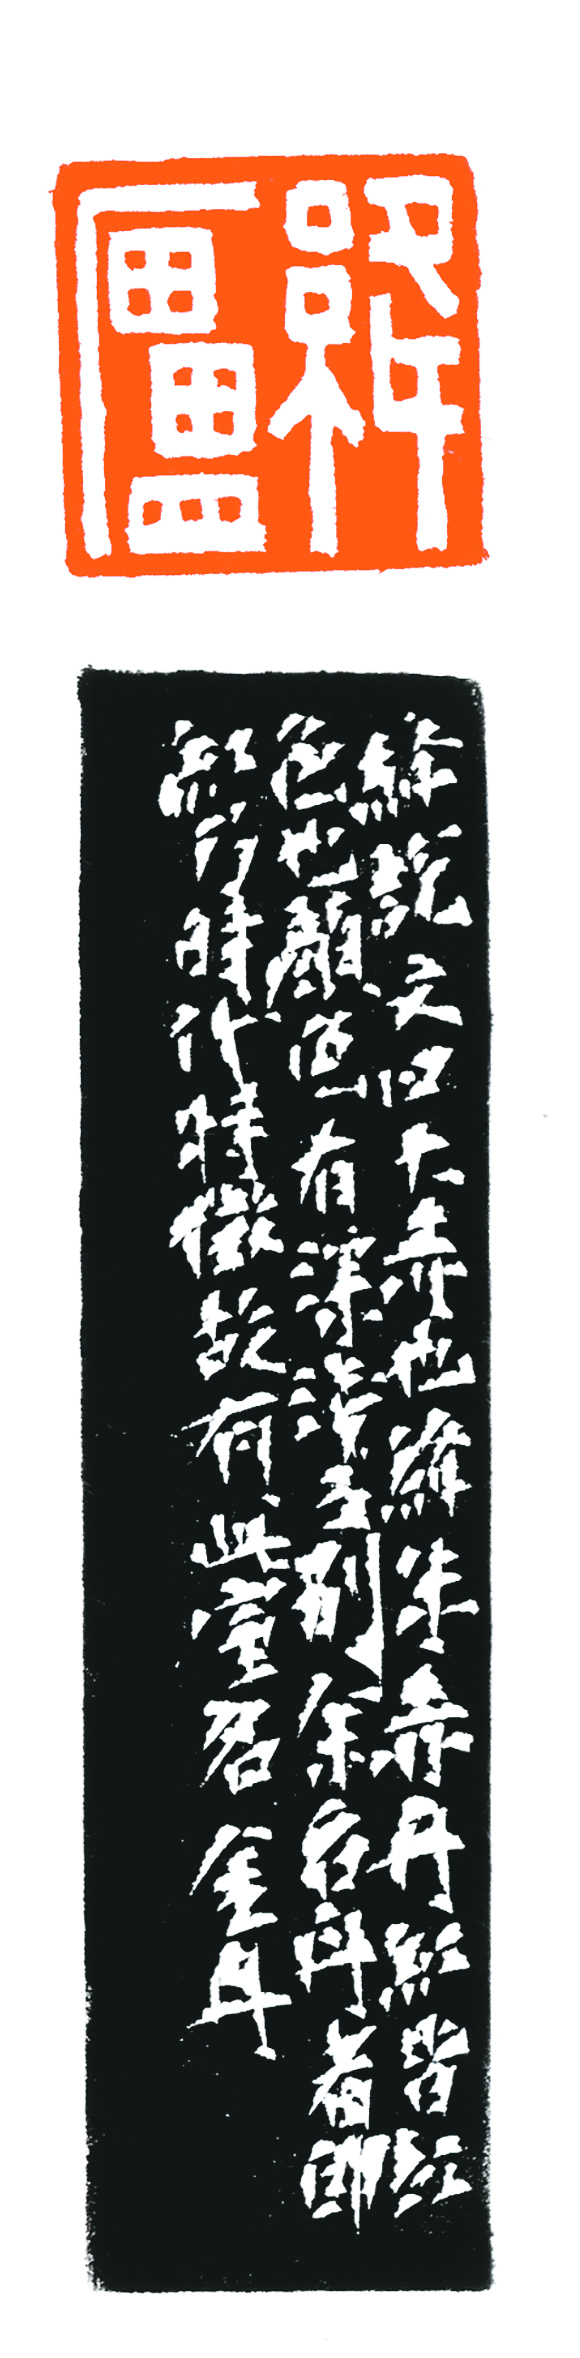 絳廬
絳說文曰大赤也絳朱赤丹紅皆紅
色也顏色有深淺之別余名丹者即
乃時代特徵故有此室名 金丹